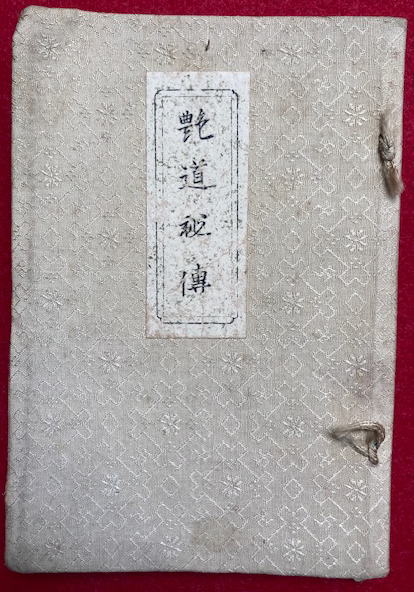 艶道秘傳